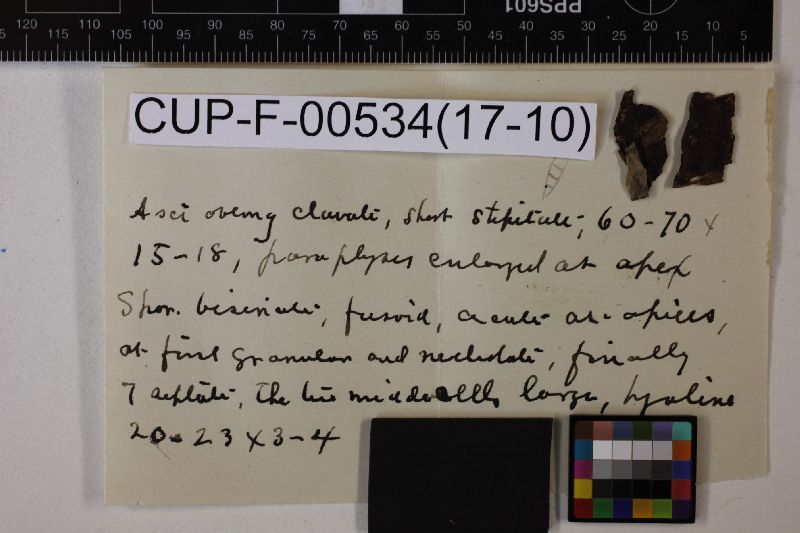 PPS601
120 110 100 90 80 70 60 50 40 30 20 10
115 105 95 85 75 65 55 45 35 25 15 5
CUP-F-00534(17-10)
Asci clavate, short stipitate, 60-70 x
15-18, paraphyses enlarged at apex
Spor. biseriate, fusoid, acute at apices,
at first granular and nucleolate, finally
7 septate, the two middle cells large, hyaline
20-23 x 3-4